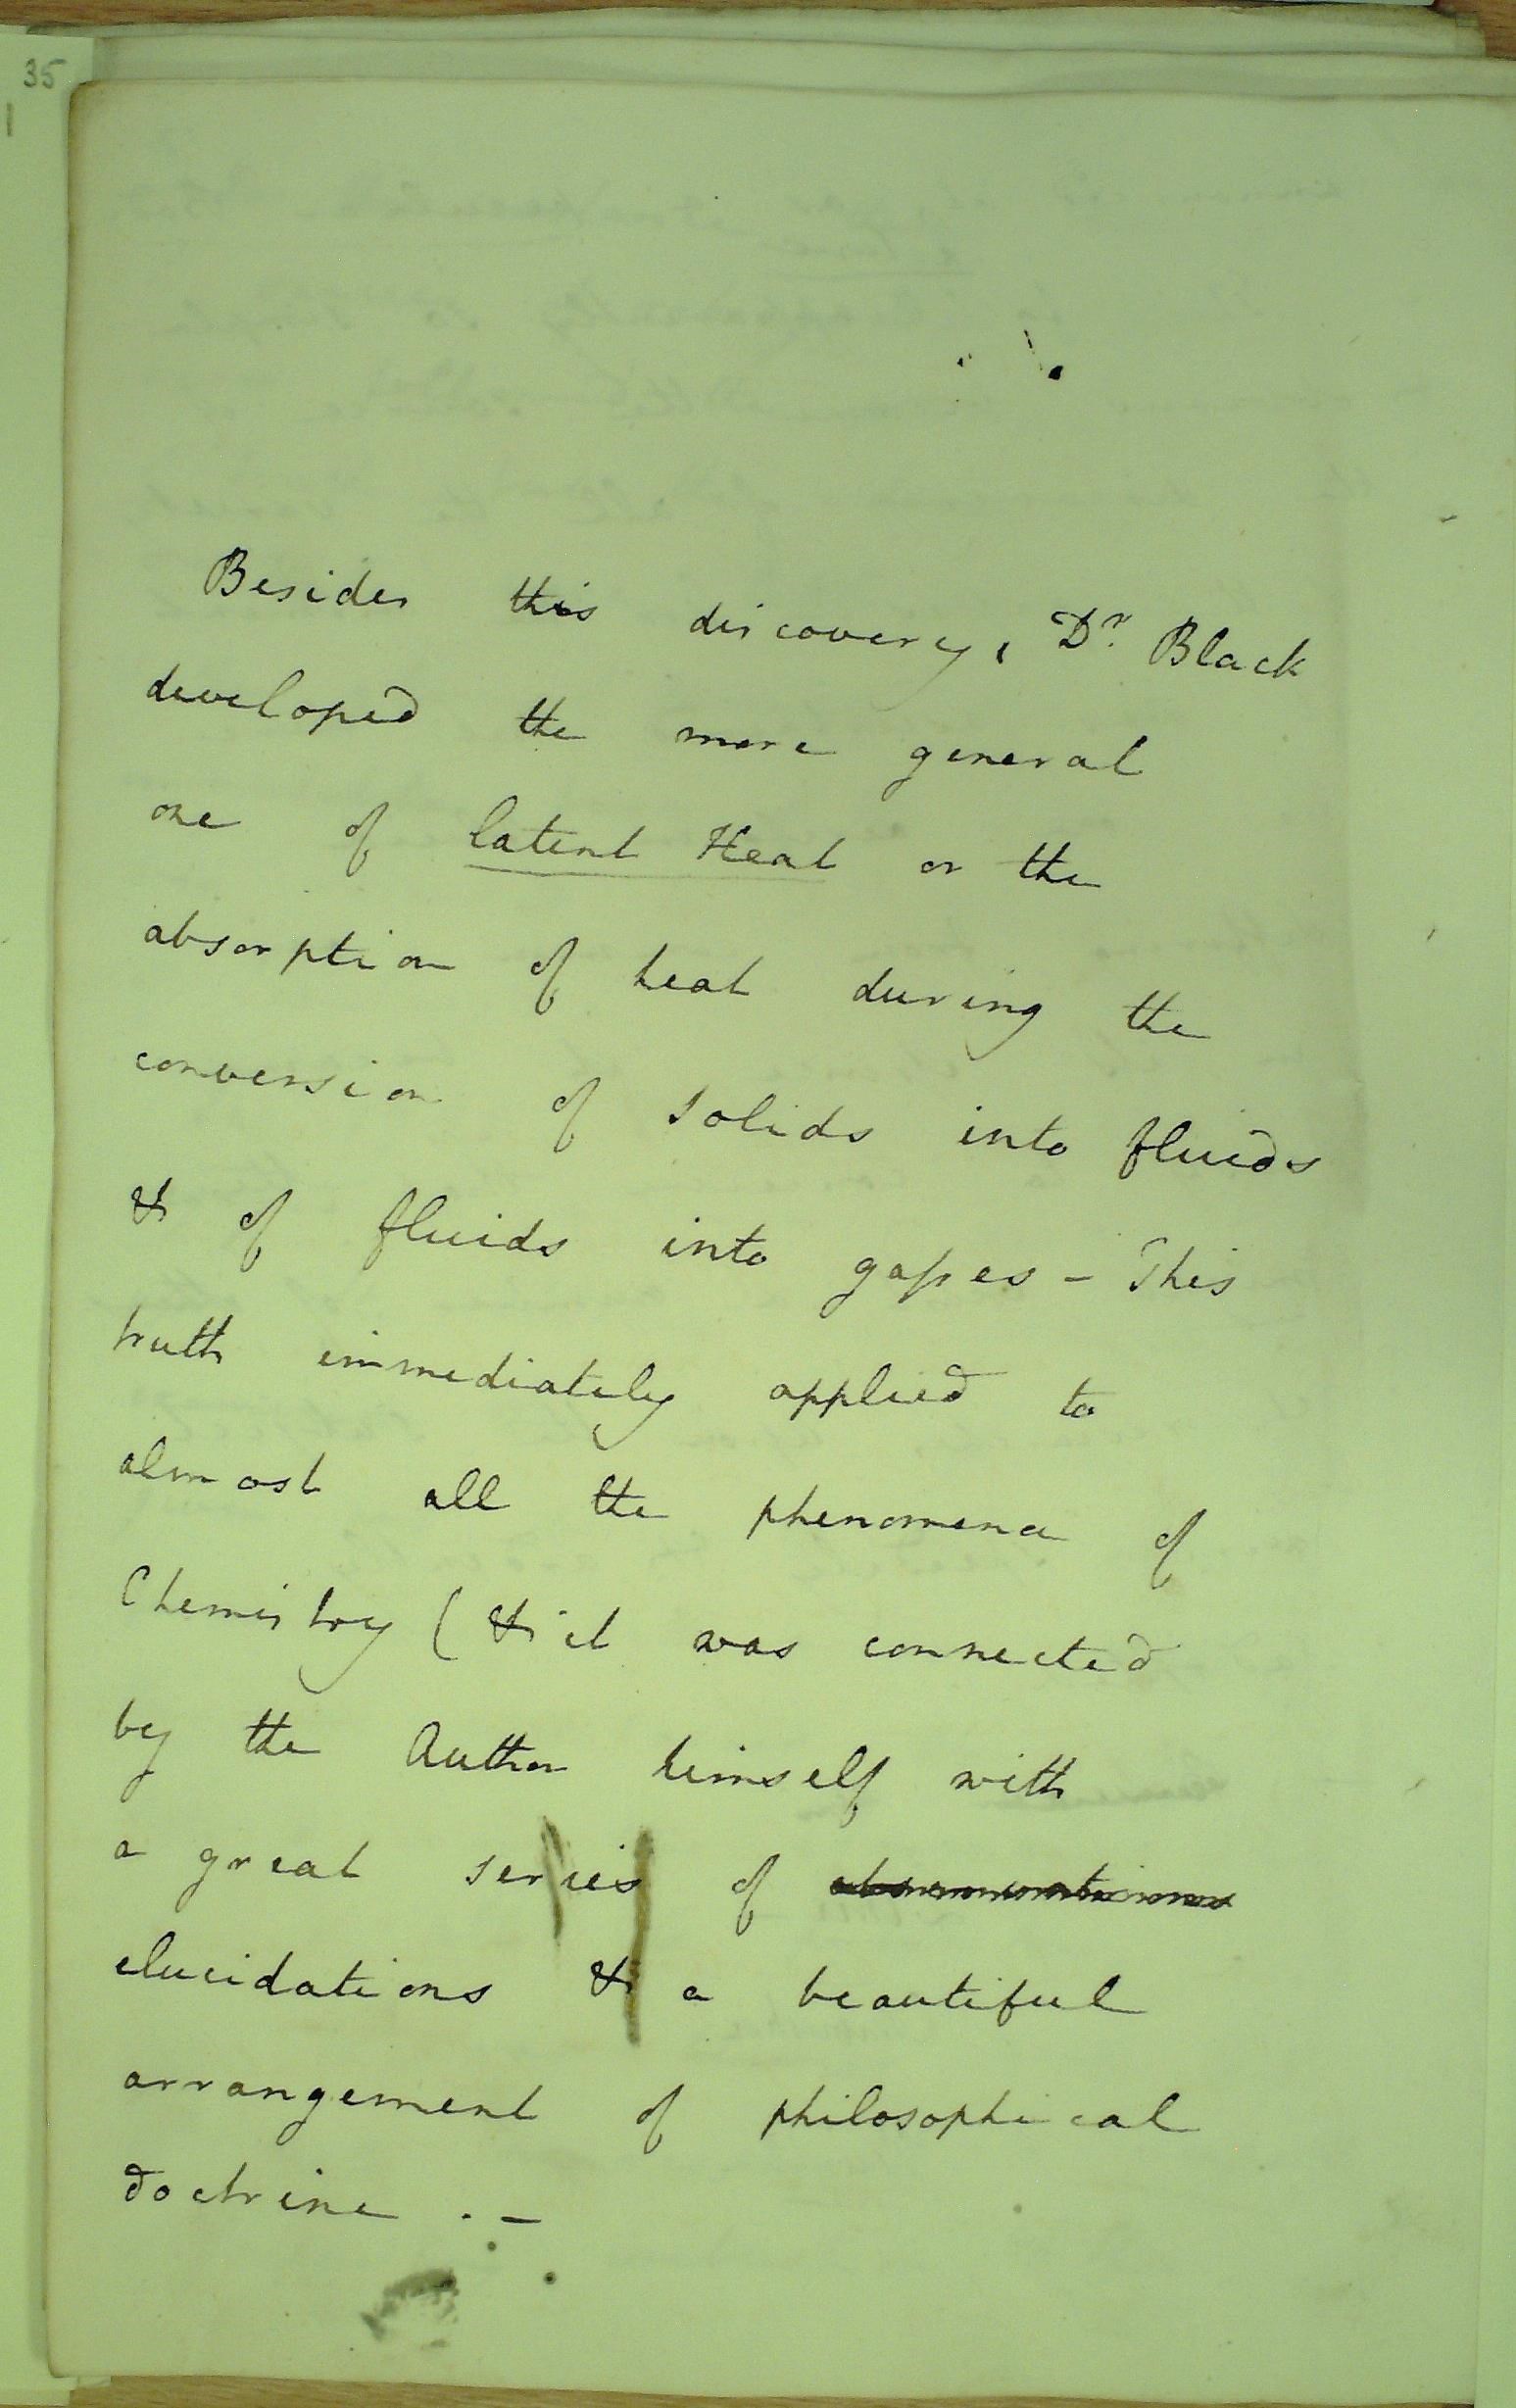 35
Besides this discovery, Dr. Black
developed the more general
one of latent Heat or the
absorption of heat during the
conversion of solids into fluids
& of fluids into gasses - This
truth immediately applied to
almost all the phenomena of
Chemistry (& it was connected
by the Author himself with
a great series of
elucidations & a beautiful
arrangement of philosophical
doctrine. -